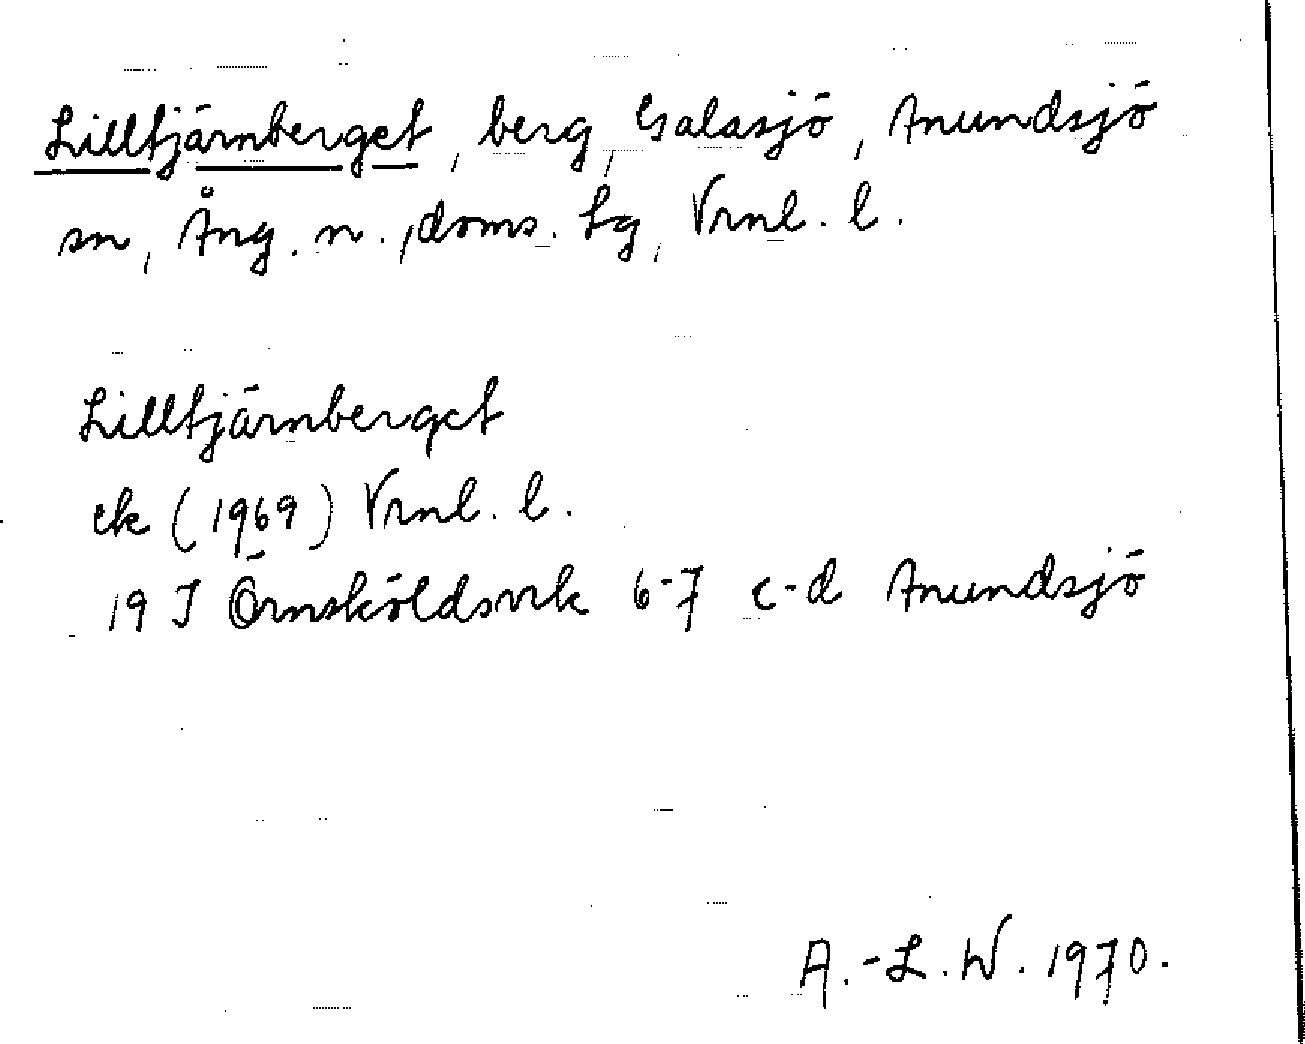 Lilltjärnberget, berg, Galasjö, Anundsjö
sn, Ång. n., doms. lg, Vrnl. l.
Lilltjärnberget
ek (1969) Vrnl. l.
19 J Örnsköldsvik 6-7 c-d Anundsjö
A.-L. W. 1970.